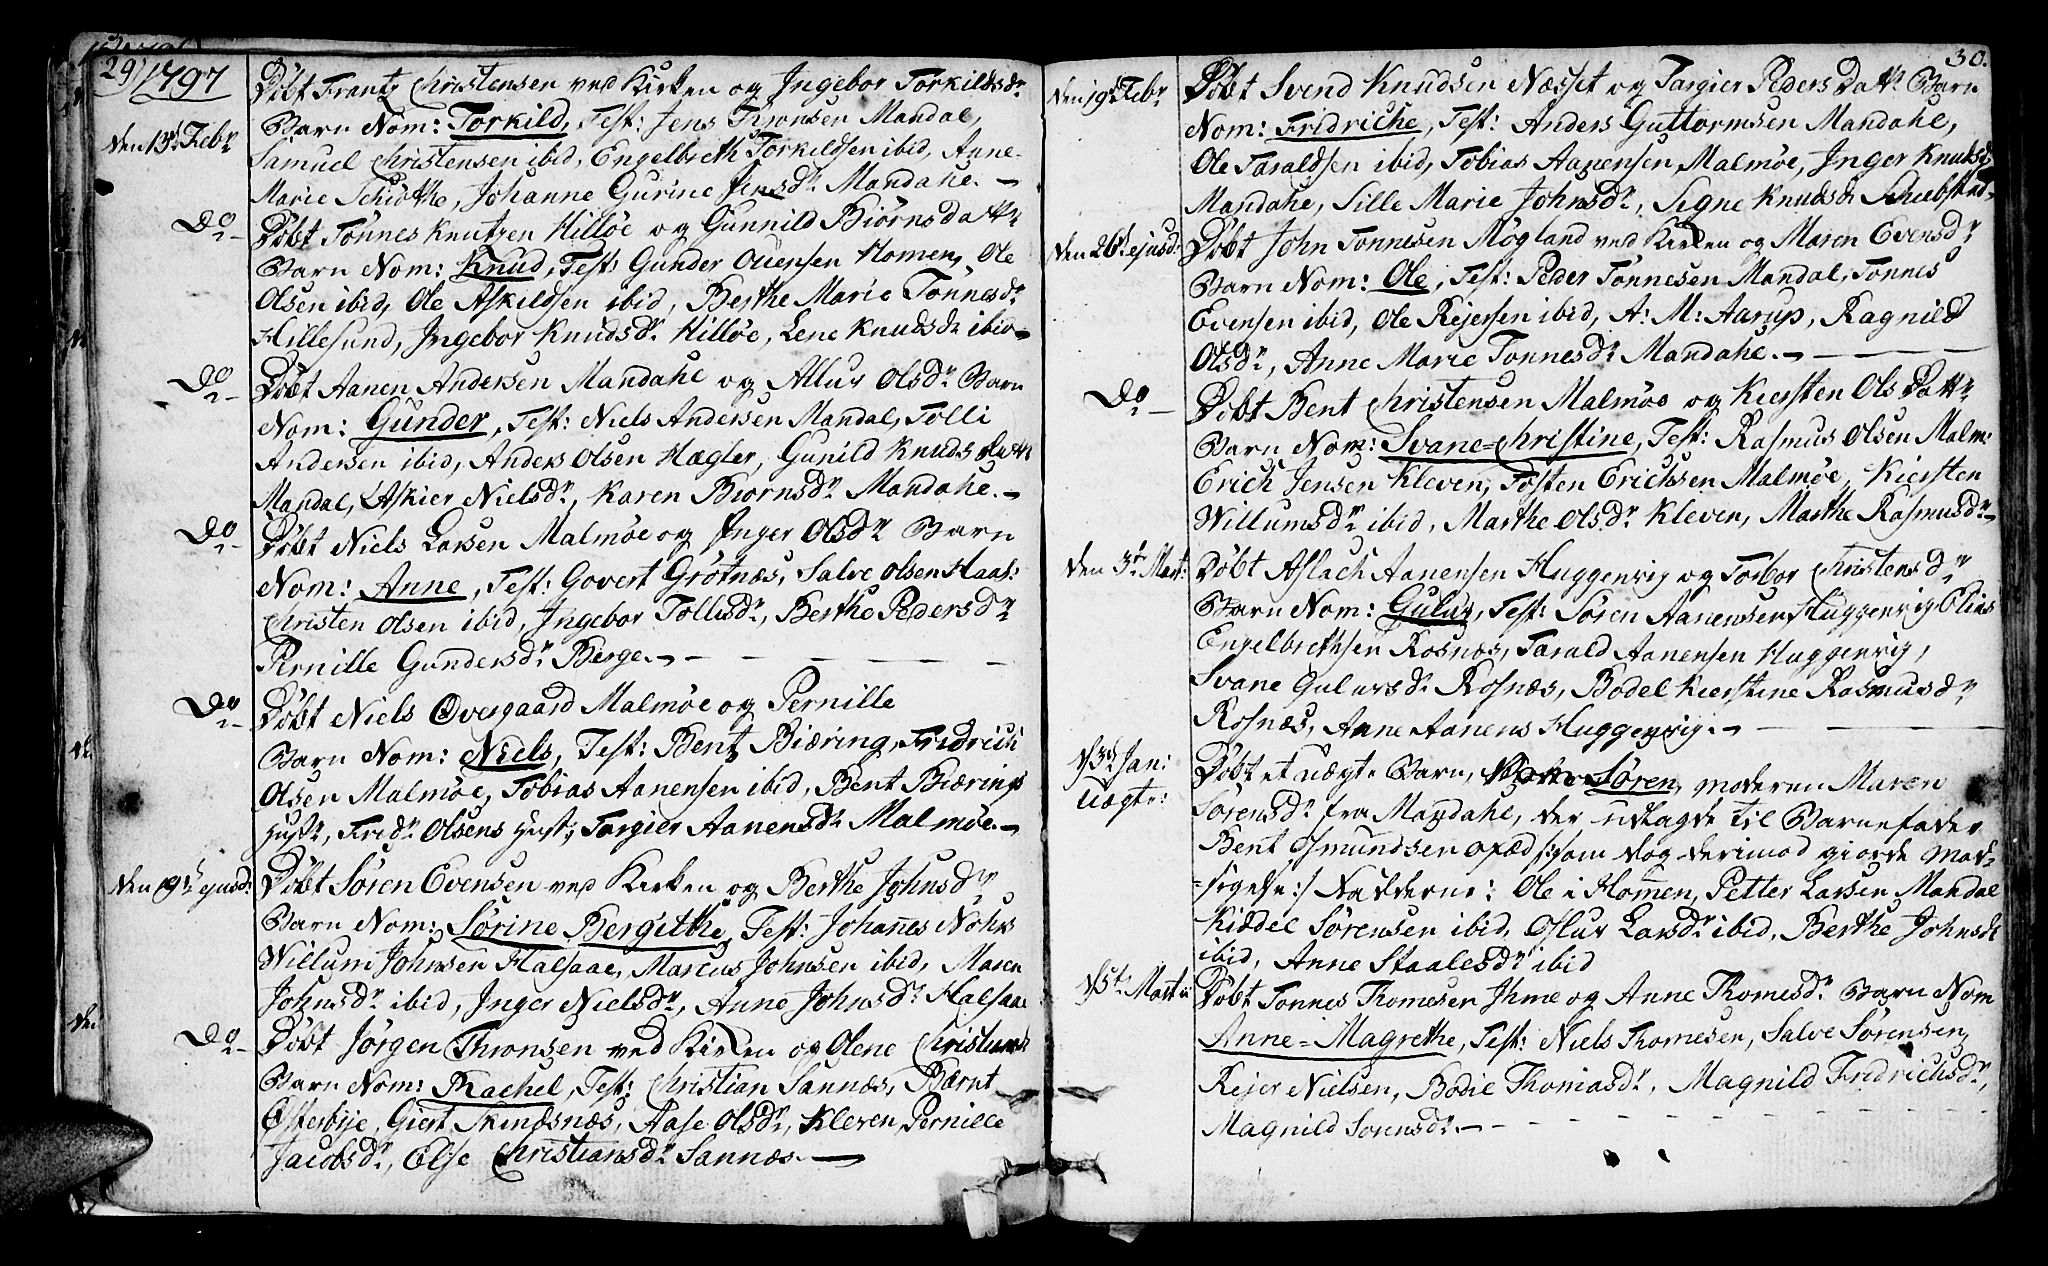 29
1797
Døbt Frantz Christensen ved Kirken og Ingebor Torkildsdr
Barn Nom: Torkild, Test: Jens Thronsen Mandal,
den 13d Febr
Samuel Christensen ibid, Engelbreth Torkildsen ibid, Anne
Marie Schiøtthe, Johanne Gurine Jensdr Mandahl.
Do
Døbt Tønnes Knutzen Hilløe og Gunnild Biørns Dattr
Barn Nom: Knud, Test: Gunder Ouensen Homen, Ole
Olsen ibid, Ole Askildsen ibid, Berthe Marie Tønnesdr
Hillesund, Ingebor Knudsdr Hilløe, Lene Knudsdr ibid
Do
Døbt Aanen Andersen Mandahl og Allur Olsdr Barn
Nom: Gunder, Test: Niels Andersen Mandal, Tolli
Andersen ibid, Anders Olsen Hægler, Gunild Knuds Dattr
Mandal, Askier Nielsdr, Karen Biørnsdr Mandahl.
Do
Døbt Niels Larsen Malmøe og Inger Olsdr Barn
Nom: Anne, Test: Govert Grøtnæs, Salve Olsen Haas:
Christen Olsen ibid, Ingebor Tollisdr, Berthe Pedersdr
Pernille Gundersdr Berge.
Do
Døbt Niels Overgaard Malmøe og Pernille
Barn Nom: Niels, Test: Bent Biæring, Fredrich
Olsen Malmøe, Tobias Aanensen ibid, Bent Biærings
Hustr, Fredr Olsens Hust, Torgier Aanensdr Malmøe.
den 19d ejusd:
Døbt Søren Evensen ved Kirken og Berthe Johnsdr
Barn Nom: Sørine Bergitthe, Test: Johannes Nøhrs
Willum Johnsen Halsaae, Marcus Johnsen ibid, Maren
Johnsdr ibid, Inger Nielsdr, Anne Johnsdr Halsaae
Do
Døbt Jørgen Thronsen ved Kirken og Olene Christensdr
Barn Nom: Rachel, Test: Christian Sannæs, Bærnt
Østebøe, Giert Skinæsnæs, Aase Olsdr, Kleven, Pernille
Jacobsdr, Else Christiansdr Sannæs.
30.
den 19d Febr
Døbt Svend Knudsen Næsset og Targier Peders Dattr Barn
Nom: Fridriche, Test: Anders Guttormsen Mandahl,
Ole Taraldsen ibid, Tobias Aanensen Malmøe, Inger Knudsdr
Mandahl, Sille Marie Johnsdr, Signe Knudsdr Scheebstad
den 26d ejusd:
Døbt John Tønnesen Møgland ved Kirken og Maren Evensdr
Barn Nom: Ole, Test: Peder Tønnesen Mandal, Tønnes
Evensen ibid, Ole Rejersen ibid, A: M: Aarup, Ragnild
Olsdr, Anne Marie Tønnesdr Mandahl.
Do
Døbt Bent Christensen Malmøe og Kiersten Ols Dattr
Barn Nom: Svane-Christine, Test: Rasmus Olsen Malm:
Erich Jensen Kleven, Tosten Erichsen Malmøe, Kiersten
Willumsdr ibid, Marthe Olsdr Kleven, Marthe Rasmusdr
den 3d Mart:
Døbt Aslach Aanensen Huggenvig og Torbor Christensdr
Barn Nom: Gulur, Test: Søren Aanensen Huggenvig, Elias
Engelbrethsen Rosnæs, Tarald Aanensen Huggenvig,
Svane Gulursdr Rosnæs, Bodel Kierstine Rasmusdr
Rosnæs, Anne Aanens Huggenvig.
d 3d Jan:
Uægte:
Døbt et uægte Barn, Søren, moderen Maren
Sørensdr fra Mandahl, der udlagde til Barnefader
Bent Osmundsen Opæd /:som dog derimod giorde Mod-
-sigelse:/ Nadderne: Ole i Homen, Petter Larsen Mandal
Kiddel Sørensen ibid, Oslur Larsdr ibid, Berthe Johnsdr
ibid, Anne Staalesdr ibid
d 5te Martii
Døbt Tønnes Thomesen Ihme og Anne Thomesdr Barn Nom
Anne-Magrethe, Test: Niels Thomesen, Salve Sørensen,
Rejer Nielsen, Bodil Thomasdr, Magnild Fredrichsdr,
Magnild Sørensdr.